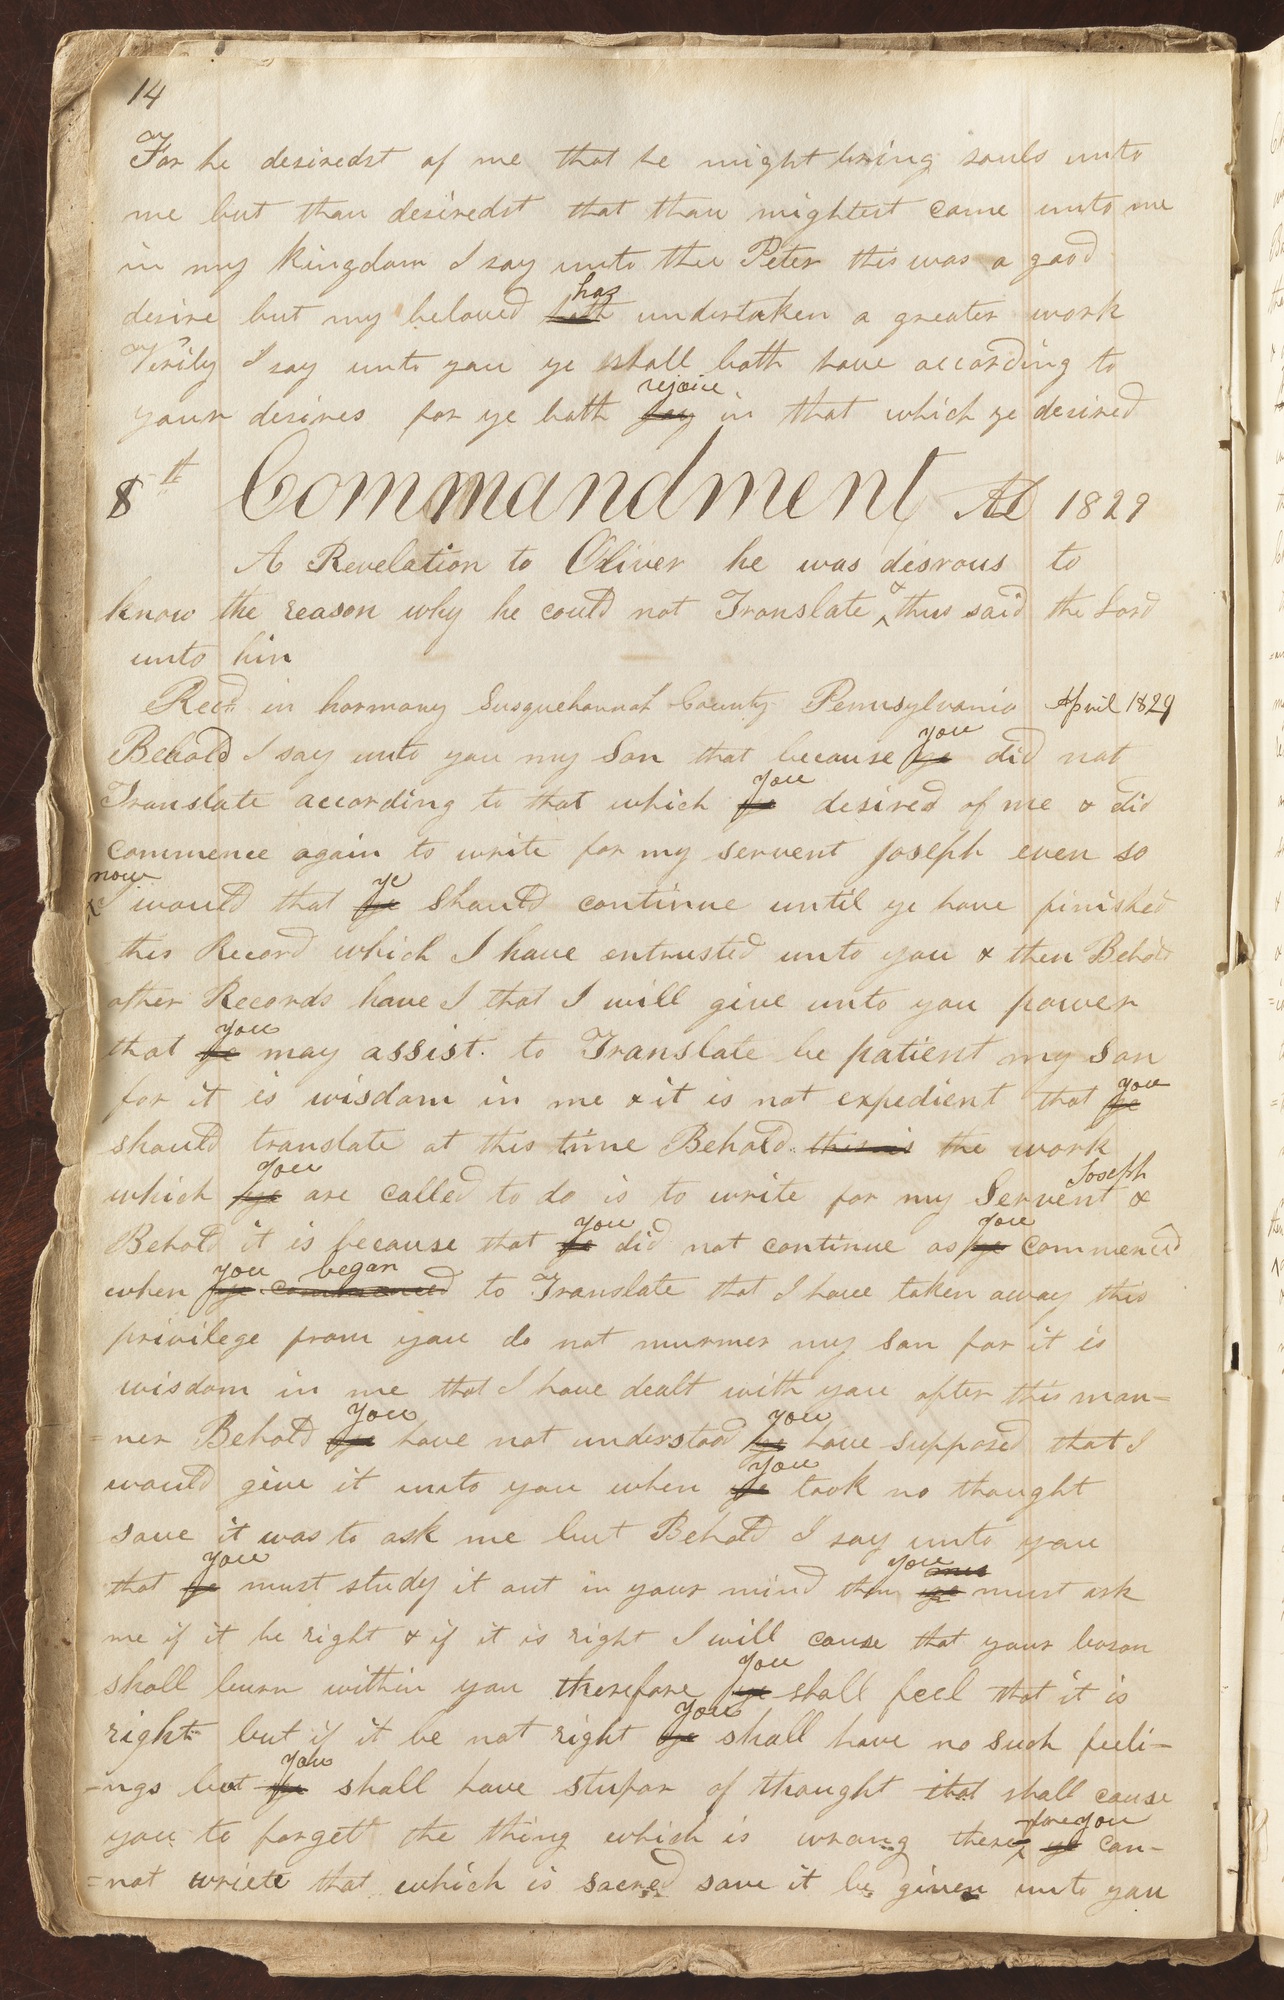 14
For he desiredst of me that he might bring souls unto
me but thou desiredst that thou mightest come unto me
in my kingdom I say unto thee Peter this was a good
has
desire but my beloved hath undertaken a greater work
Verily I say unto you ye shall both have according to
rejoice
your desires for ye both joy in that which ye desired
8th Commandment AD 1829
A Revelation to Oliver he was disrous to
know the reason why he could not Translate & thus said the Lord
unto him
Recd. in harmony Susquehannah County Pennsylvania April 1829
you
Behold I say unto you my Son that because ye did not
you
Translate according to that which ye desired of me & did
commence again to write for my servent Joseph even so
now ye
I would that ye should continue until ye have finished
this Record which I have entrusted unto you & then Behold
other Records have I that I will give unto you power
you
that ye may assist to Translate be patient my Son
you
for it is wisdom in me & it is not expedient that ye
should translate at this time Behold this is the work
you Joseph
which ye are called to do is to write for my Servent &
you you
Behold it is because that ye did not continue as ye commenced
you began
when ye commenced to Translate that I have taken away this
privilege from you do not murmer my son for it is
wisdom in me that I have dealt with you after this man=
you you
=ner Behold ye have not understood ye have supposed that I
you
would give it unto you when ye took no thought
save it was to ask me but Behold I say unto you
you you
that ye must study it out in your mind then ye must ask
me if it be right & if it is right I will cause that your bosom
you
shall burn within you therefore ye shall feel that it is
you
right but if it be not right ye shall have no such feeli-
you
-ngs but ye shall have stupor of thought that shall cause
fore you
you to forget the thing which is wrong there ye can-
=not wriete that which is sacred save it be given unto you